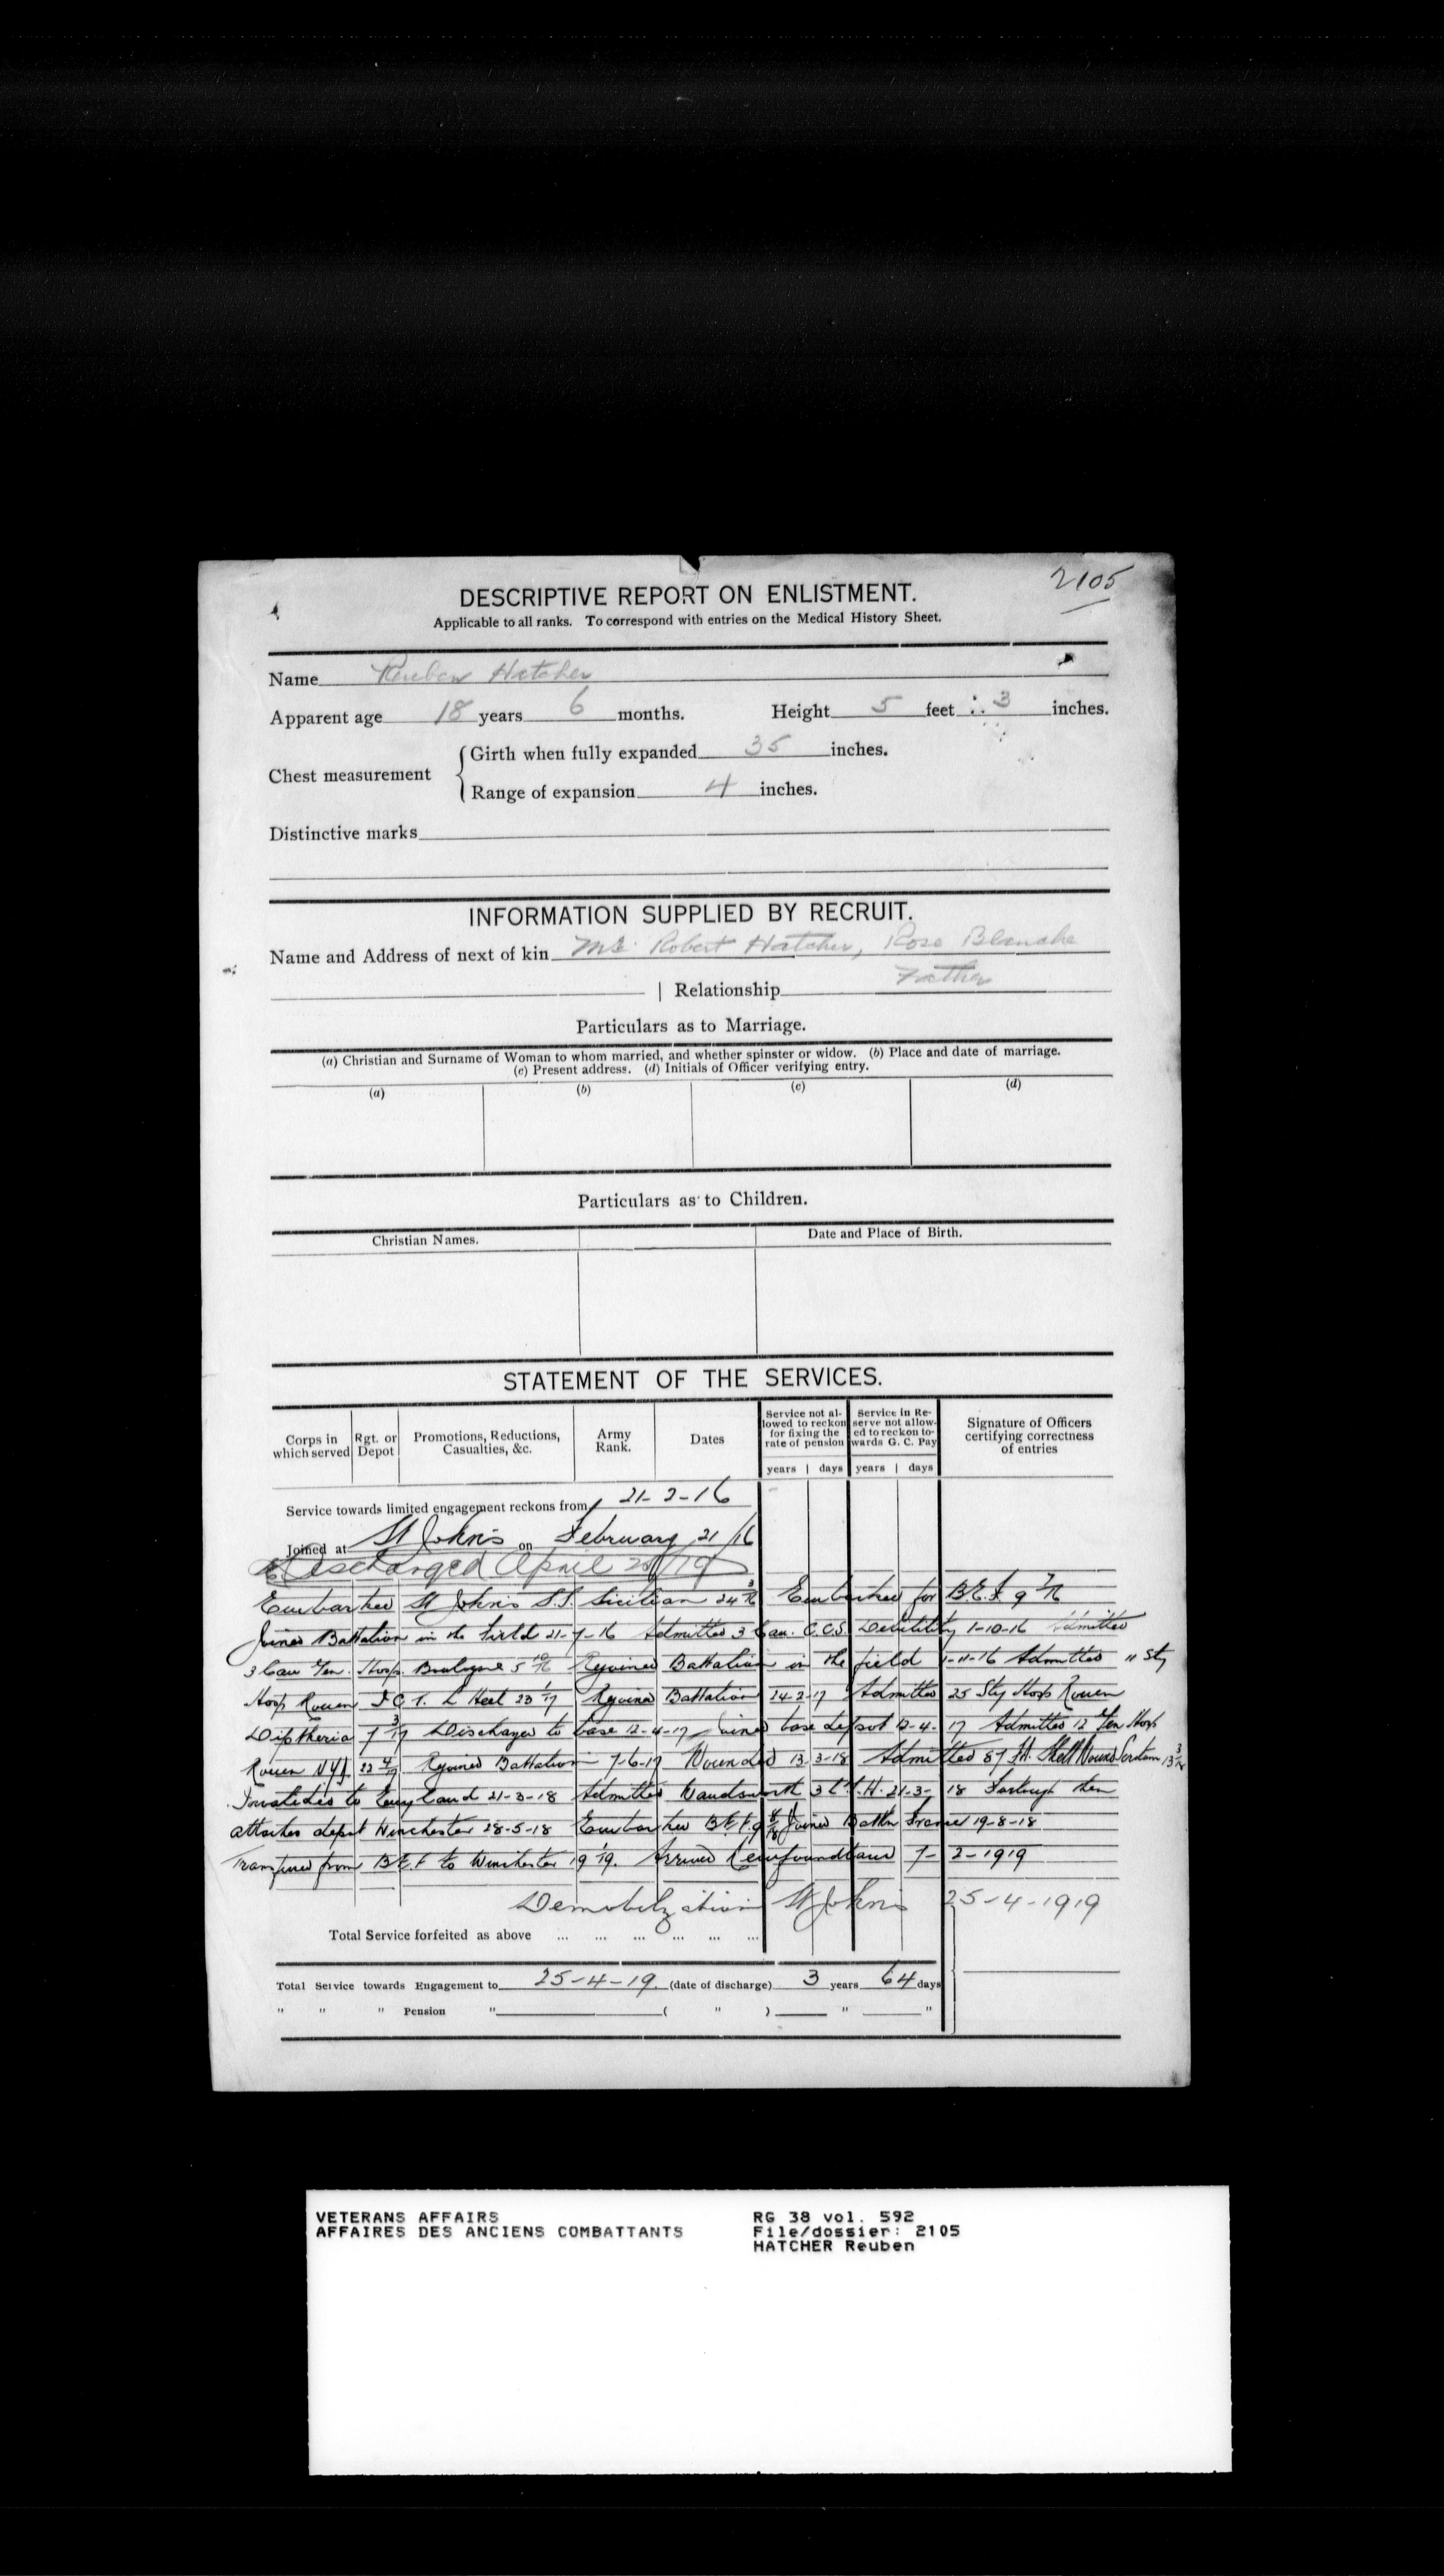 2105
DESCRIPTIVE REPORT ON ENLISTMENT.
Applicable to all ranks. To correspond with entries on the Medical History Sheet.
Name Reuben Hatcher
Apparent age 18 years 6 months. Height 5 feet 3 inches.
Chest measurement
Girth when fully expanded 35 inches.
Range of expansion 4 inches.
Distinctive marks
INFORMATION SUPPLIED BY RECRUIT.
Name and Address of next of kin Mr. Robert Hatcher, Rose Blanche
Relationship Father
Particulars as to Marriage.
(a) Christian and Surname of Woman to whom married, and whether spinster or widow. (b) Place and date of marriage.
(c) Present address. (d) Initials of Officer verifying entry.
(a) (b) (c) (d)
Particulars as to Children.
Christian Names. Date and Place of Birth.
STATEMENT OF THE SERVICES.
Corps in which served Rgt. or Depot Promotions, Reductions, Casualties, &c. Army Rank. Dates Service not allowed to reckon for fixing the rate of pension Service in Reserve not allowed to reckon towards G. C. Pay Signature of Officers certifying correctness of entries
years days years days
Service towards limited engagement reckons from 21-2-16
Joined at St Johns on February 21/16
Discharged April 25/19
Embarked St Johns S.S. Sicilian 24 3/16 Embarked for B.E.F. 9 7/16
Joined Battalion in the field 21-7-16 Admitted 3 Can. C.C.S. Debility 1-10-16 Admitted
3 Can Gen. Hosp. Boulogne 5 10/16 Rejoined Battalion in the field 1-11-16 Admitted 11 Sty
Hosp Rouen I.C.T. L Heel 23 1/17 Rejoined Battalion 24-2-17 Admitted 25 Sty Hosp Rouen
Diptheria 7 3/17 Discharged to base 12-4-17 Joined base depot 12-4-17 Admitted 12 Gen Hosp
Rouen 22 4/17 Rejoined Battalion 7-6-17 Wounded 13-3-18 Admitted 87 Shell Wound 13 3/18
Invalided to England 21-3-18 Admitted Wandsworth 3 21-3-18 Furlough then
attached depot Winchester 28-5-18 Embarked B.E.F. 9 8/18 Joined Battn France 19-8-18
Transferred from B.E.F. to Winchester 19 1/19. Arrived Newfoundland 7-2-1919
Demobilization St Johns 25-4-1919
Total Service forfeited as above ... ... ... ... ... ...
Total Service towards Engagement to 25-4-19 (date of discharge) 3 years 64 days
" " " Pension " ( " ) " "
VETERANS AFFAIRS RG 38 vol. 592
AFFAIRES DES ANCIENS COMBATTANTS File/dossier: 2105
HATCHER Reuben